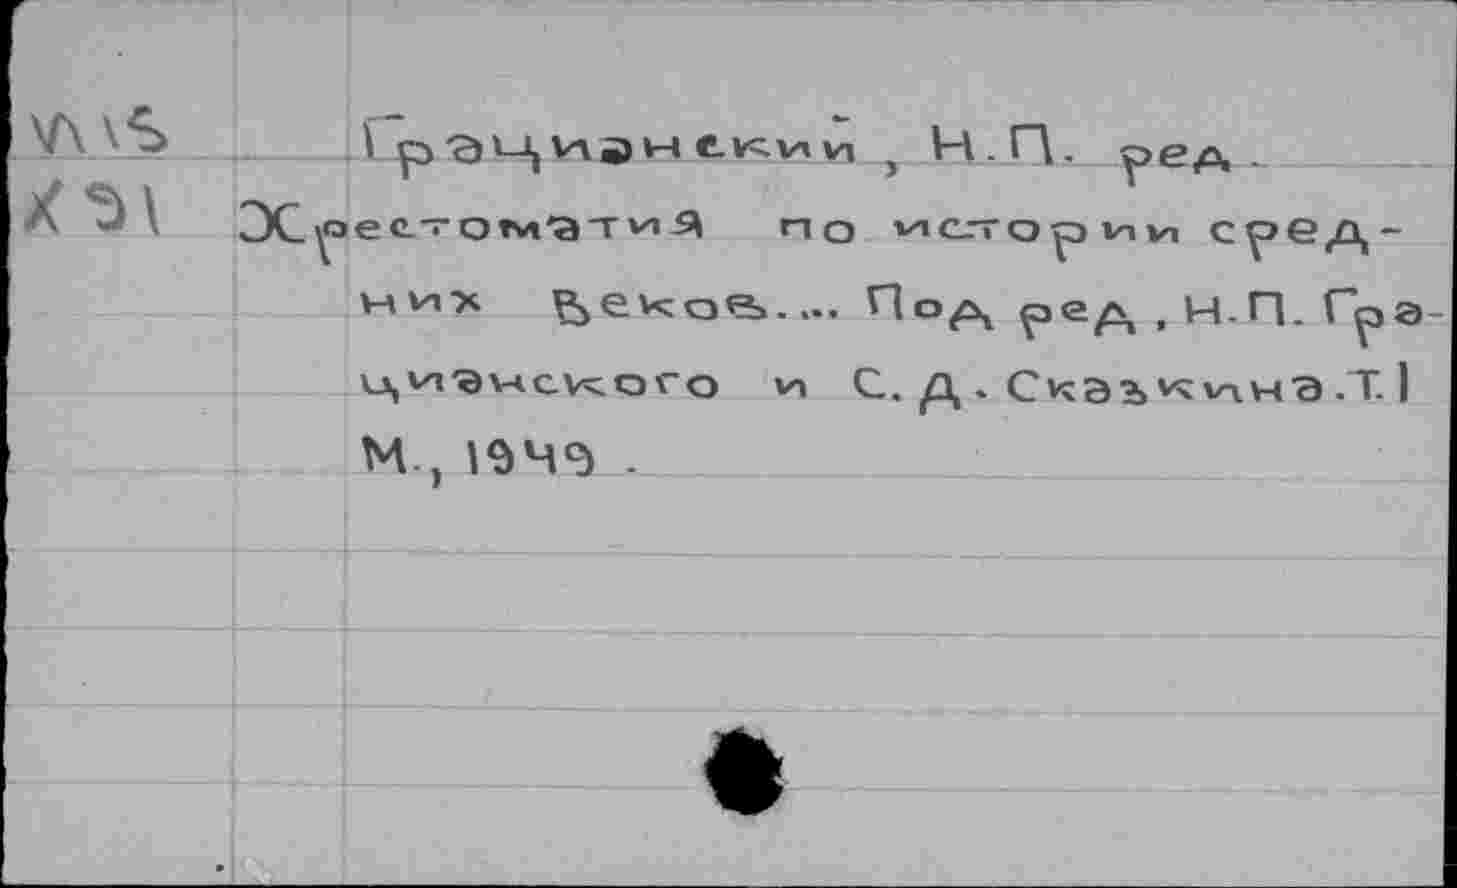 И15 Грацианский, Н.П. ред.
Х91 Хрестоматия по истории сред-
них веков.... Под ред, Н.П. Гра-
цианского и С.Д. Сказкина.Т.1
М., 1949.